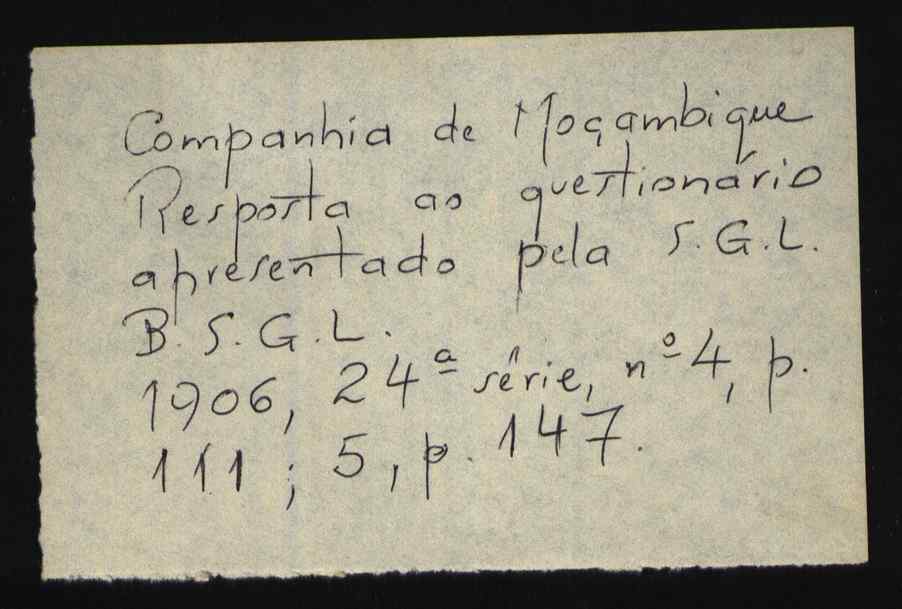 Companhia de Moçambique
Resposta ao questionário
apresentado pela S.G.L.
B.S.G.L.
1906, 24ª série, nº 4, p.
111; 5, p. 147.